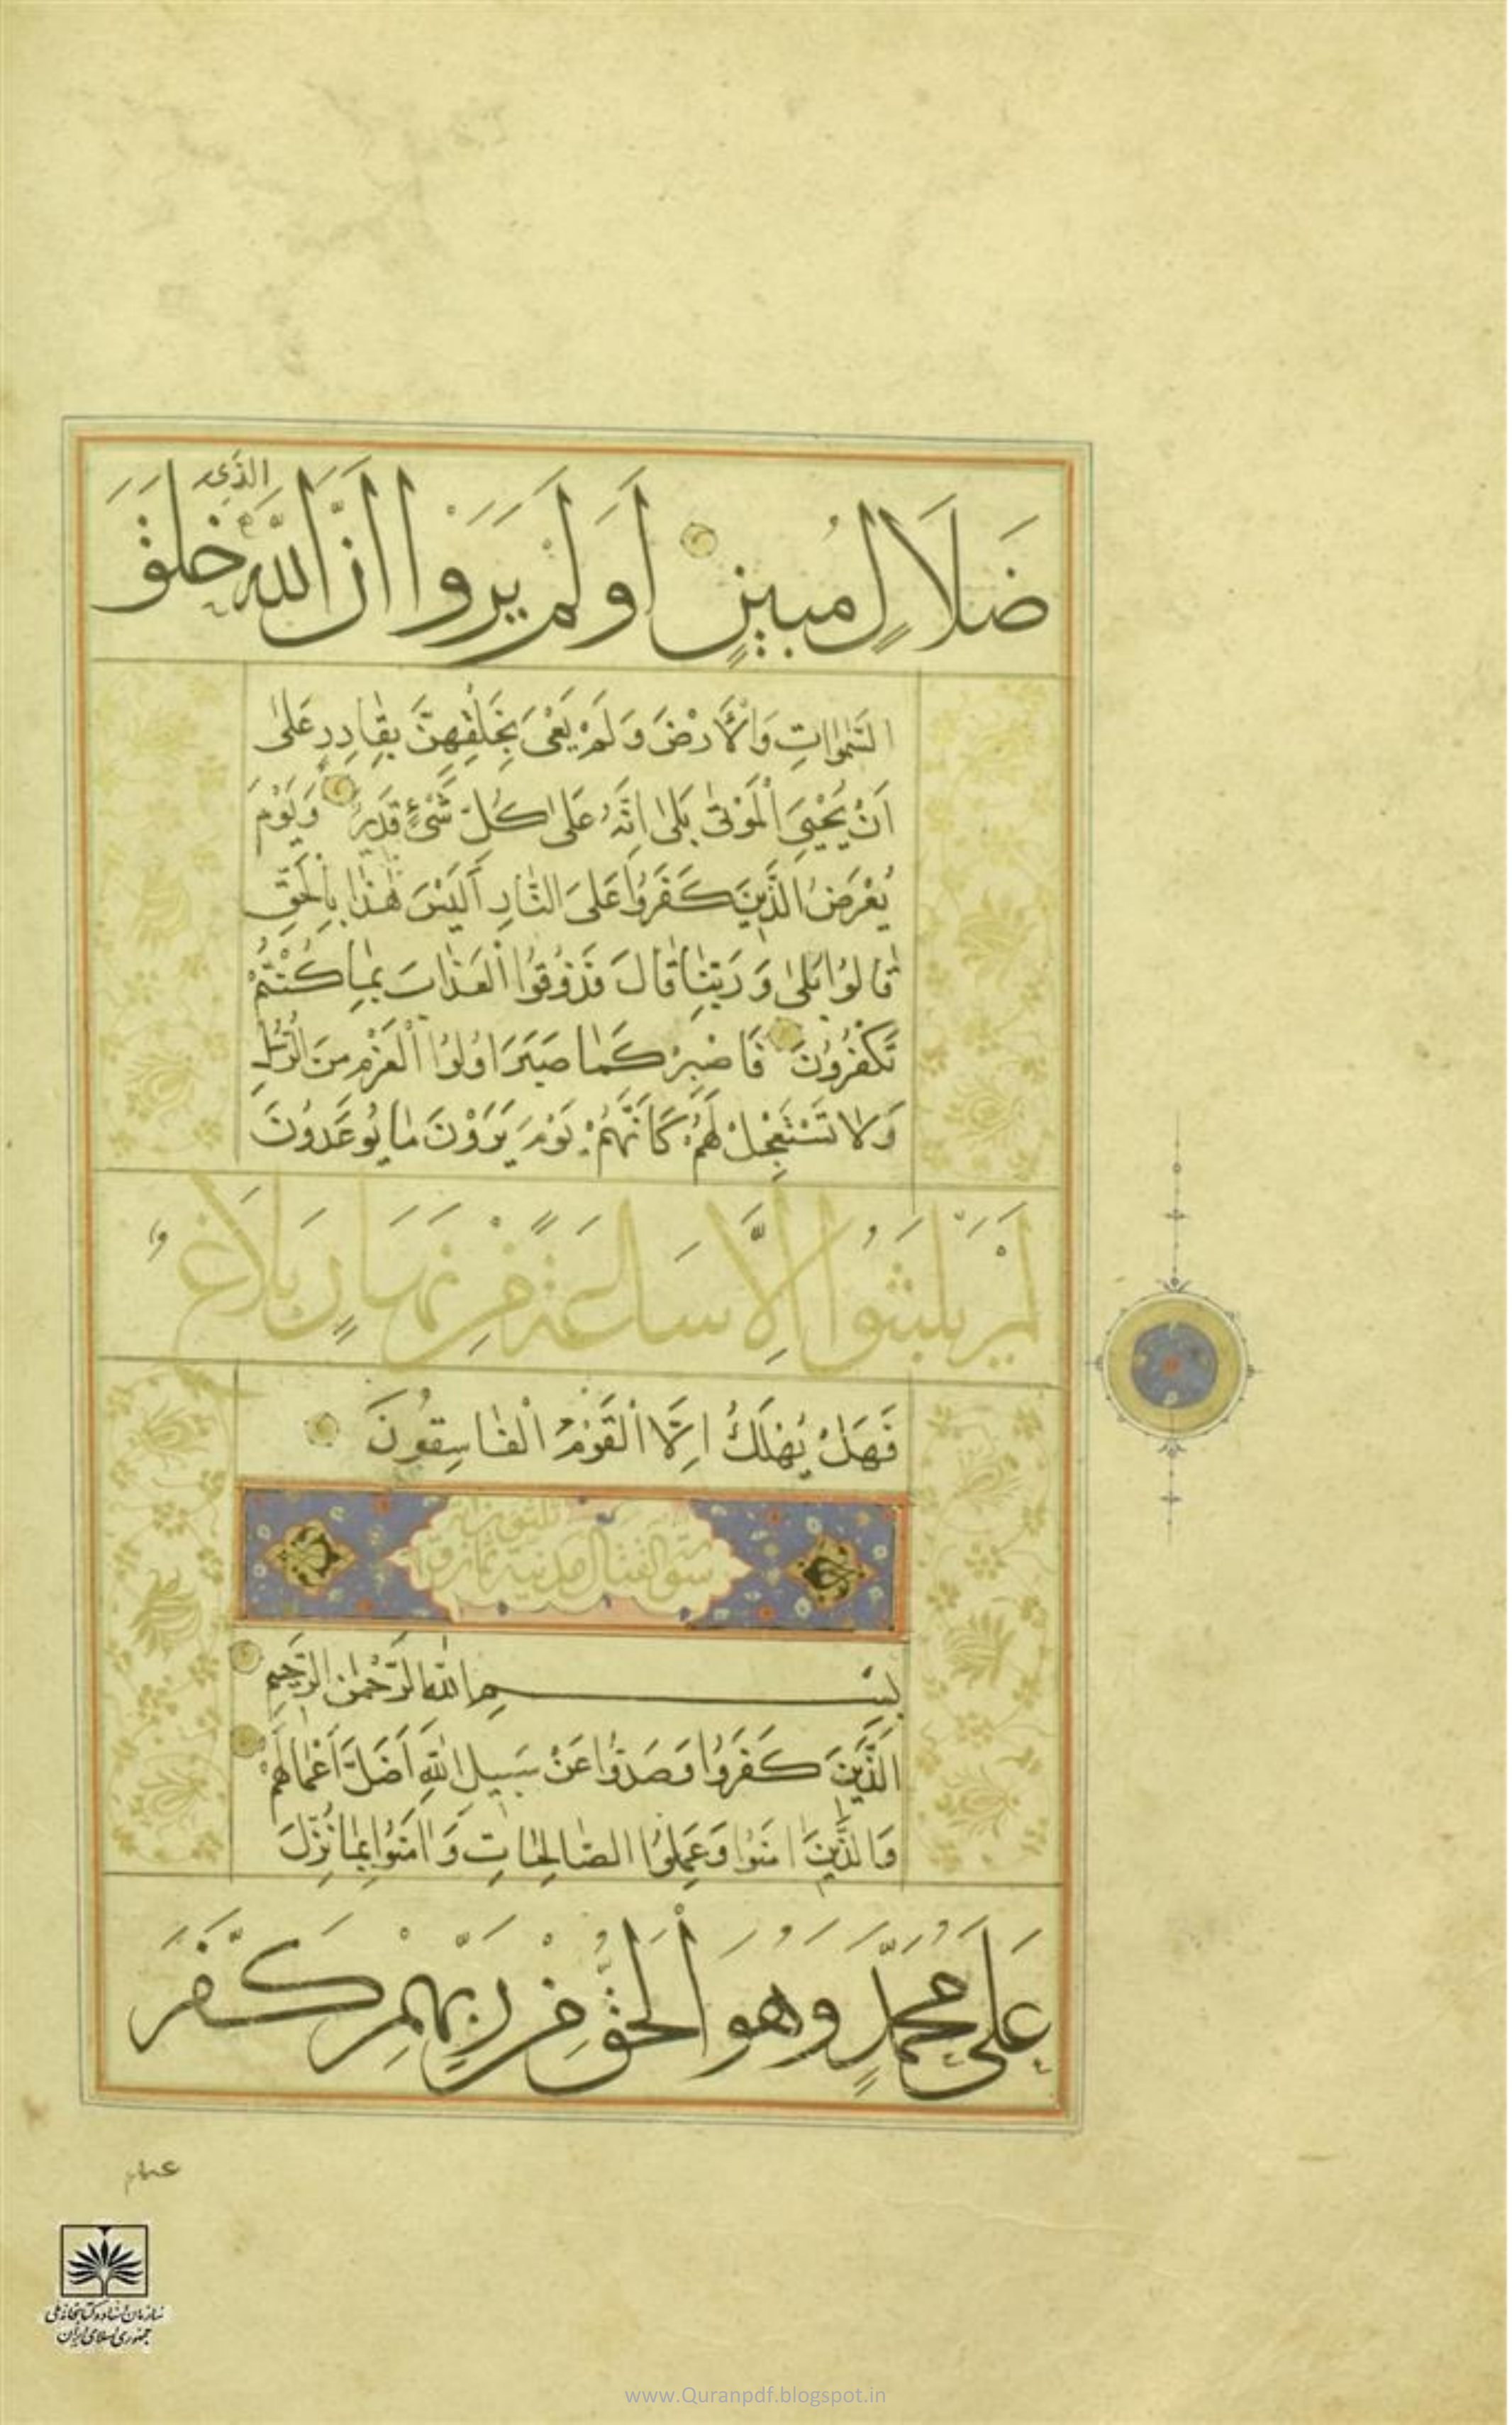 الَّذِي
ضَلَالٍ مُبِينٍ أَوَلَمْ يَرَوْا أَنَّ اللَّهَ خَلَقَ
السَّمٰوَاتِ وَالْأَرْضَ وَلَمْ يَعْيَ بِخَلْقِهِنَّ بِقَادِرٍ عَلىٰ
اَنْ يُحْيِيَ الْمَوْتىٰ بَلىٰ اِنَّهُ عَلىٰ كُلِّ شَيْءٍ قَدِيرٌ وَيَوْمَ
يُعْرَضُ الَّذِينَ كَفَرُوا عَلَى النَّارِ أَلَيْسَ هٰذَا بِالْحَقِّ
قَالُوا بَلىٰ وَرَبِّنَا قَالَ فَذُوقُوا الْعَذَابَ بِمَا كُنْتُمْ
تَكْفُرُونَ فَاصْبِرْ كَمَا صَبَرَ اُولُوا الْعَزْمِ مِنَ الرُّسُلِ
وَلَا تَسْتَعْجِلْ لَهُمْ كَاَنَّهُمْ يَوْمَ يَرَوْنَ مَا يُوعَدُونَ
لَمْ يَلْبَثُوا اِلَّا سَاعَةً مِنْ نَهَارٍ بَلَاغٌ
فَهَلْ يُهْلَكُ اِلَّا الْقَوْمُ الْفَاسِقُونَ
سورة القتال مدنية
بِسْمِ اللّٰهِ الرَّحْمٰنِ الرَّحِيمِ
الَّذِينَ كَفَرُوا وَصَدُّوا عَنْ سَبِيلِ اللّٰهِ اَضَلَّ اَعْمَالَهُمْ
وَالَّذِينَ اٰمَنُوا وَعَمِلُوا الصَّالِحَاتِ وَاٰمَنُوا بِمَا نُزِّلَ
عَلىٰ مُحَمَّدٍ وَهُوَ الْحَقُّ مِنْ رَبِّهِمْ كَفَّرَ
عنهم
سازمان اسناد و کتابخانه ملی
جمهوری اسلامی ایران
www.Quranpdf.blogspot.in